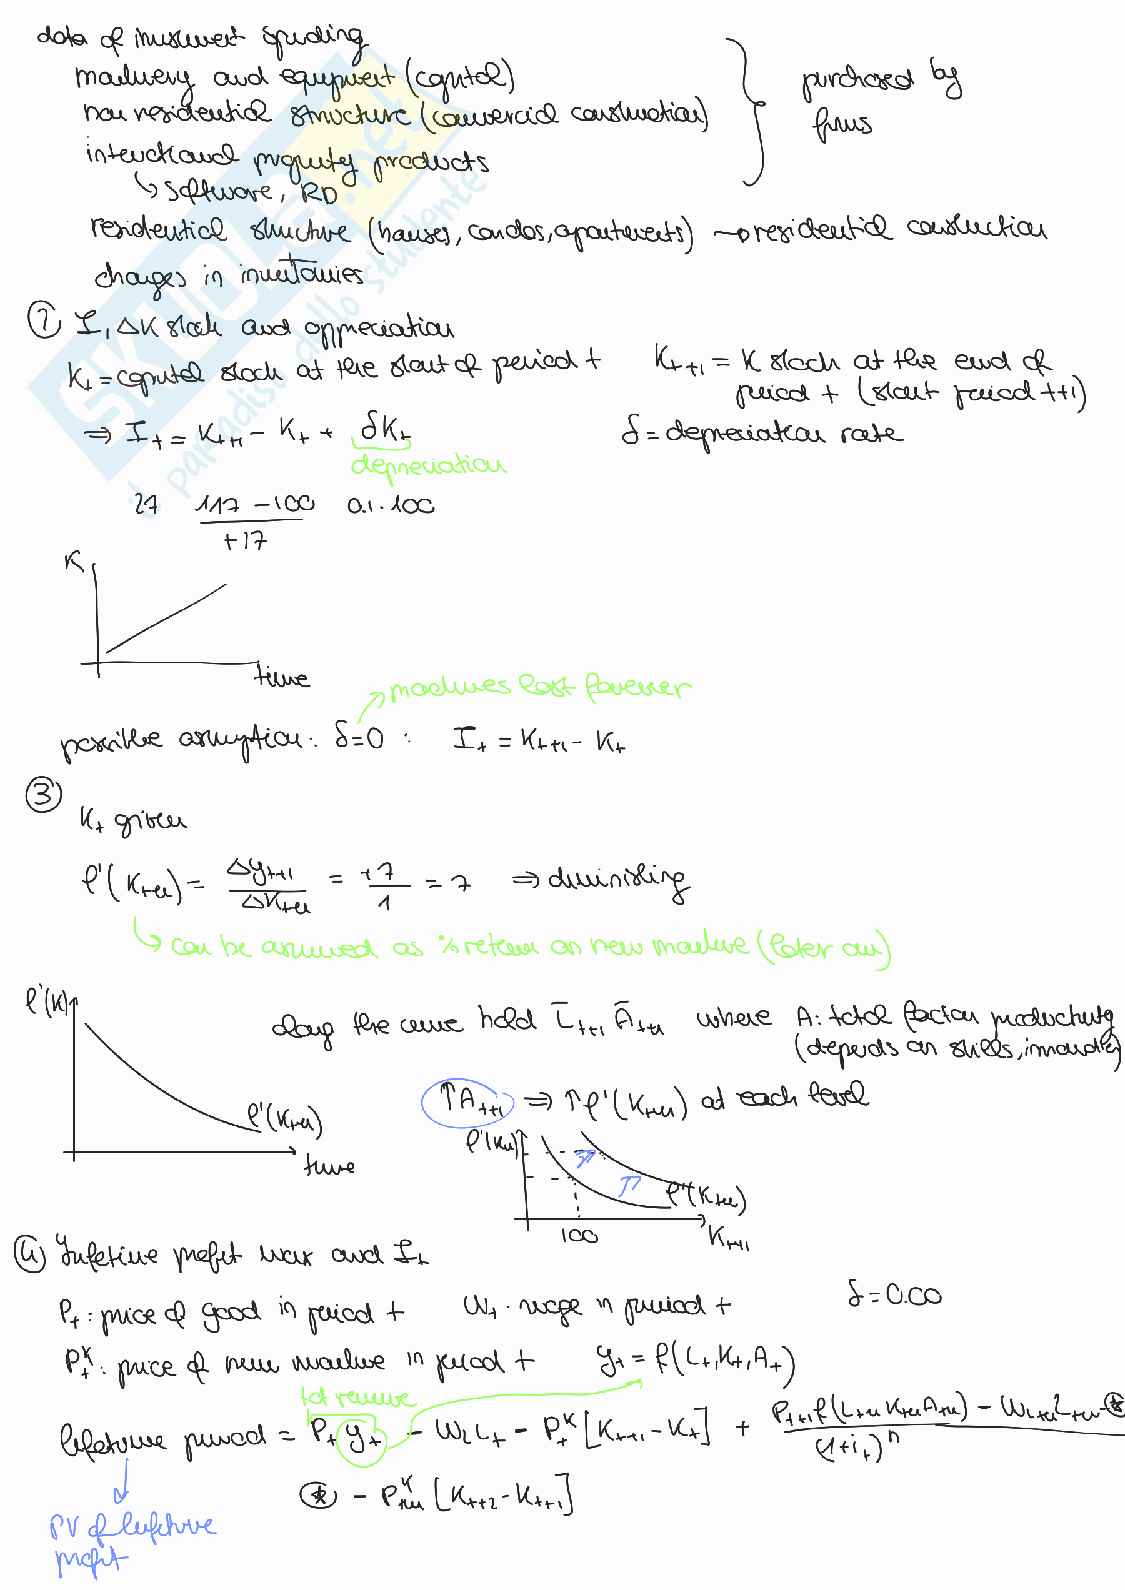 data of investment spending
machinery and equipment (capital)
non residential structure (commercial construction)
purchased by
firms
intellectual property products
↳ software, RD
residential structure (houses, condos, apartments) → residential construction
changes in inventories
① I, ΔK stock and appreciation
Kt = capital stock at the start of period t
Kt+1 = K stock at the end of
period t (start period t+1)
⇒ It = Kt+1 - Kt + δKt
δ = depreciation rate
depreciation
27 117 - 100 0.1 · 100
+17
K
time
machines last forever
possible assumption: δ=0 : It = Kt+1 - Kt
③
Kt given
f'(Kt+1) = ΔYt+1 / ΔKt+1 = +7 / 1 = 7 ⇒ diminishing
↳ can be assumed as % return on new machine (later on)
f'(K)
along the curve hold L̄t+1 Āt+1 where A: total factor productivity
(depends on skills, innovation)
↑At+1 ⇒ ↑f'(Kt+1) at each level
f'(Kt+1)
time
f'(Kt+1)
f'(Kt+1)
100
Kt+1
④ lifetime profit max and It
Pt: price of good in period t Wt: wage in period t δ = 0.00
PtK: price of new machine in period t yt = f(Lt, Kt, At)
tot revenue
lifetime period = Pt yt - WtLt - PtK [Kt+1 - Kt] + Pt+1f(Lt+1 Kt+1 At+1) - Wt+1Lt+1 - ⊛ / (1+it)n
⊛ - Pt+1K [Kt+2 - Kt+1]
PV of lifetime
profit
SKUOLA.net
il paradiso dello studente